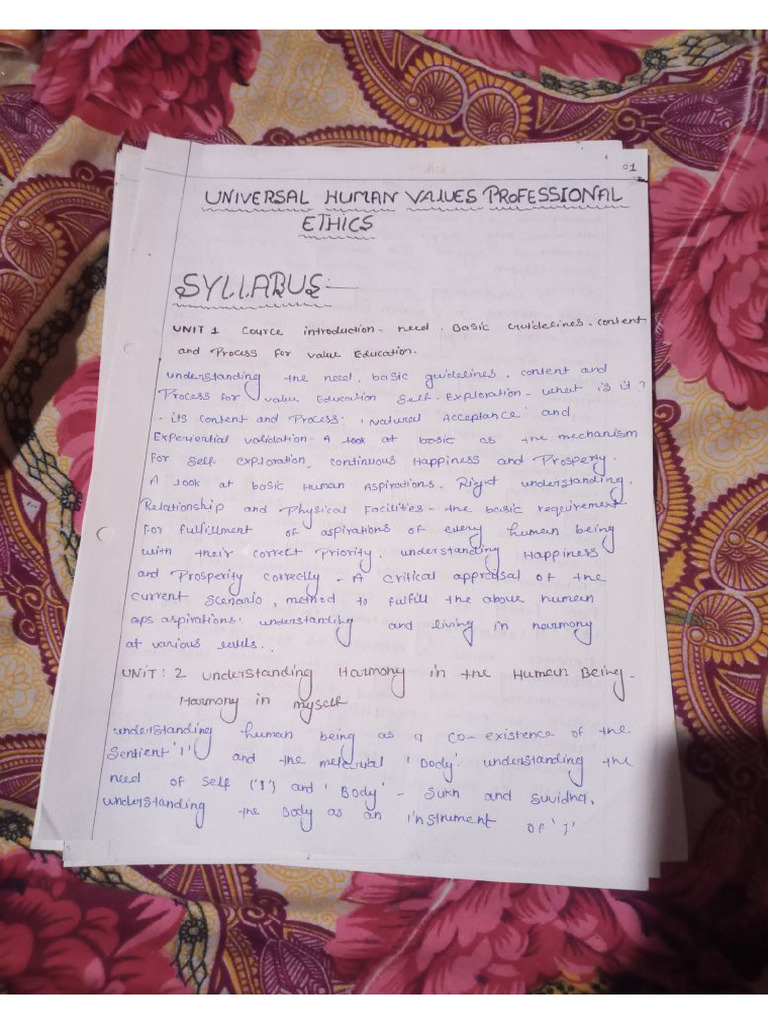 01
UNIVERSAL HUMAN VALUES PROFESSIONAL
ETHICS
SYLLABUS:
UNIT 1 Cource introduction - need. Basic Guidelines. content
and Process For value Education.
understanding the need, basic guidelines, content and
Process for value Education Self-Exploration - what is it?
- its content and Process: 'Natural Acceptance' and
Experiential validation - A look at basic as the mechanism
For self exploration, continuous Happiness and Prosperty.
A look at basic Human Aspirations. Right understanding,
Relationship and Physical Facilities - the basic requirement
For fulfillment of aspirations of every human being
with their correct Priority. understanding Happiness
and Prosperity correctly - A critical appraisal of the
current scenario, method to fulfill the above human
aps aspirations: understanding and living in harmony
at various levels..
UNIT: 2 understanding Harmony in the Human Being -
Harmony in myself
understanding human being as a co-existence of the
Sentient 'I' and the 'Body' understanding the
need of self ('I') and 'Body' - Sukh and Suvidha,
understanding the Body as an instrument of 'I'